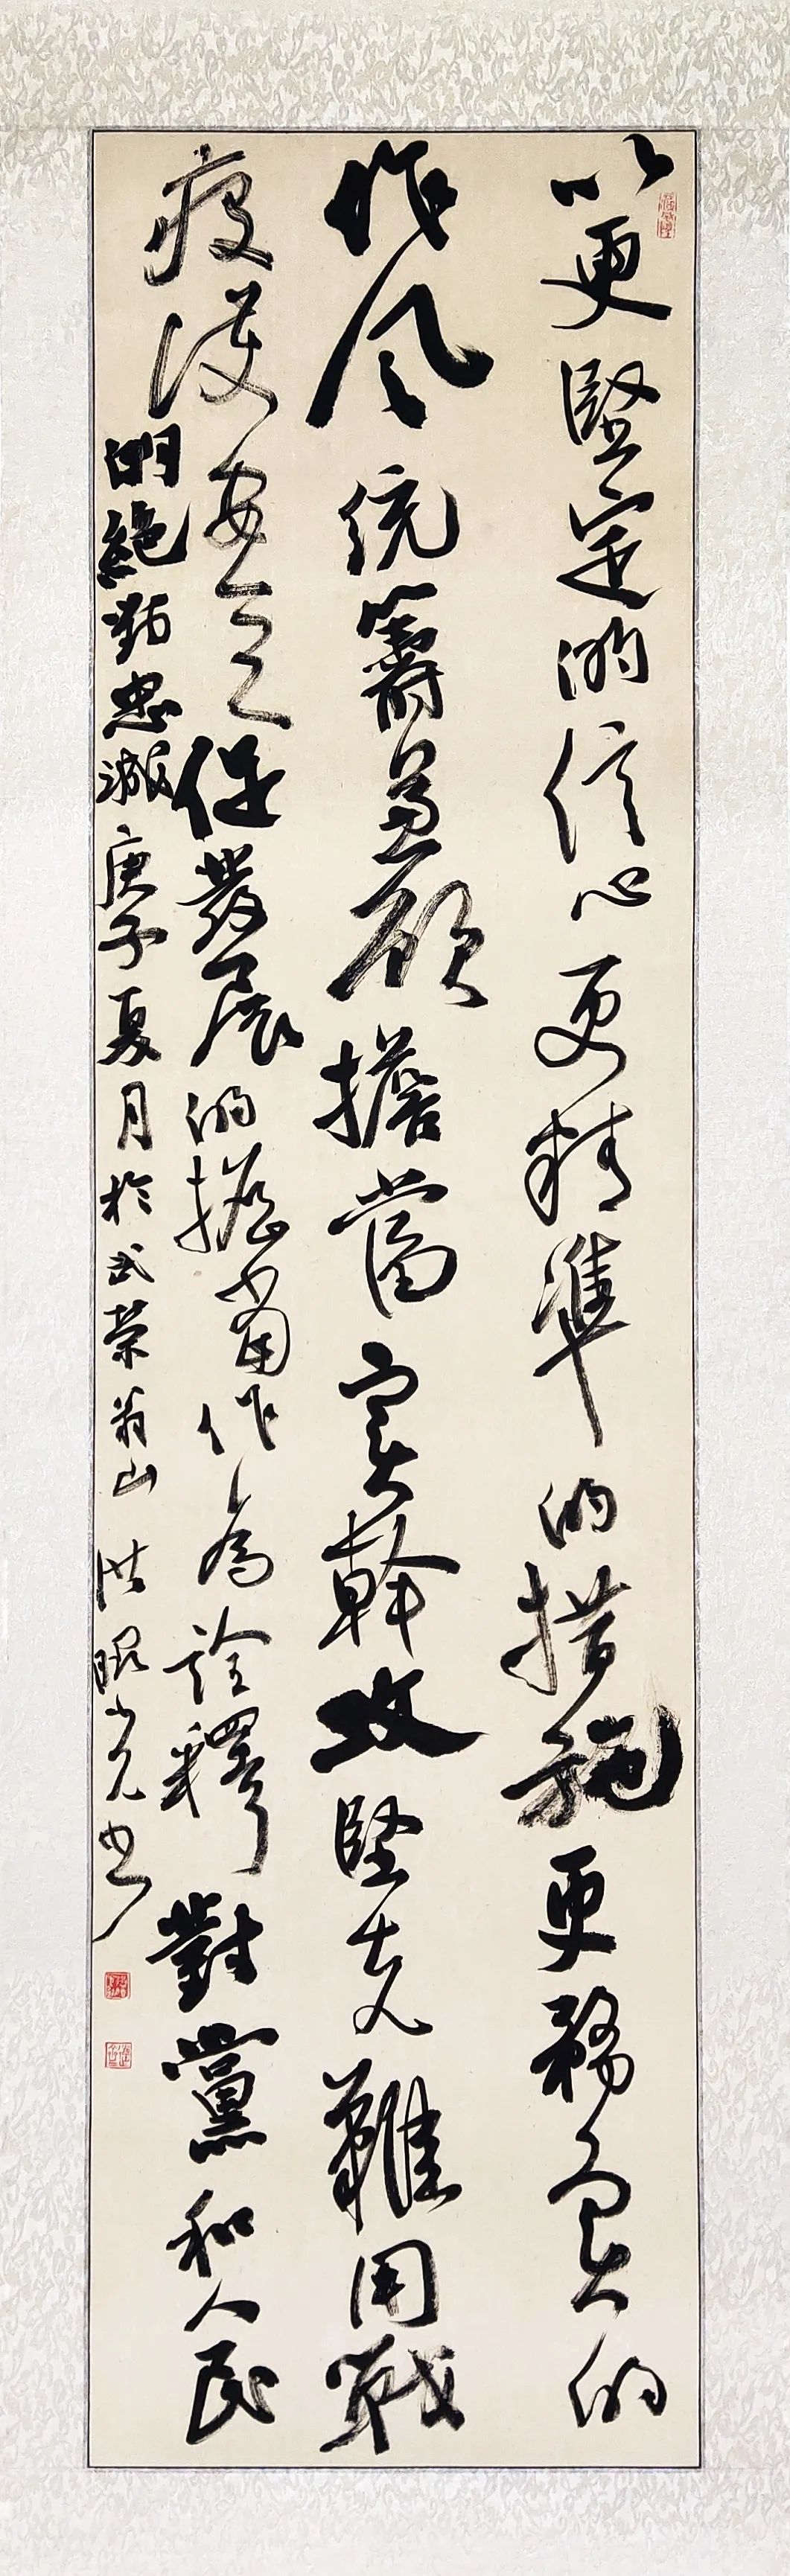 以更堅定的信心更精準的措施更務實的
作風統籌兼顧擔當實幹攻堅克難用戰
疫護安定促發展的擔當作為詮釋對黨和人民
的絕對忠誠庚子夏月於武榮翁山洪昭光書